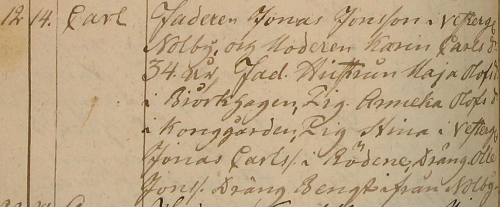 12 14. Carl Fadern Jonas Jonsson i Vesterg.
Nolby, och Moderen Karin Carlsd.
34. År, Fad. Hustrun Maja Olofsd.
i Björkhagen, Pig. Annika Olofsd.
i Konggården, Pig Stina i Vesterg.
Jonas Carls/. i Rödene, Dräng. Olle
Jons/. Dräng Bengt ifrån Nolby